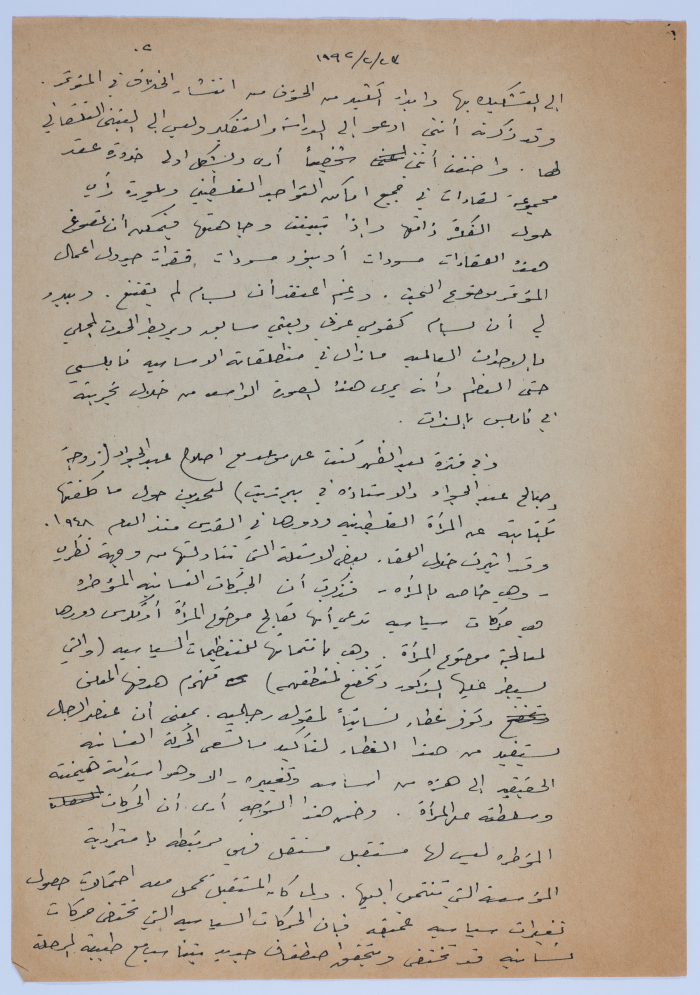 ٠٢
١٩٩٢/٢/٢٧
إلى التشكيك بها وابداء الكثير من الخوف من انتشار الخلاف في المؤتمر .
وقد ذكرت أنني ادعو إلى الدراسة والتفكير وليس إلى التبني التلقائي
لها . واضفت أنني شخصياً أرى وبشكل اولي ضرورة عقد
مجموعة لقاءات في جميع اماكن التواجد الفلسطيني وبلورة رأي
حول الفكرة ذاتها وإذا تبينت وجاهتها فيمكن أن تصوغ
هذه اللقاءات مسودات أو بنود مسودات فقرات جدول اعمال
المؤتمر موضوع البحث . ورغم اعتقد أن بسام لم يقتنع . ويبدو
لي أن بسام كقومي عربي وبعثي سابق ويربط الحدث المحلي
بالاحداث العالمية مازال في منطلقاته الاساسية نابلسي
حتى العظم وأنه يرى هذه الصورة الواسعة من خلال تجربته
في نابلس بالذات .
وفي فترة بعد الظهر كنت على موعد مع اصلاح عبد الجواد (زوجة
صالح عبد الجواد والاستاذه في بيرزيت) للحديث حول ما كلفتها
بكتابته عن المرأة الفلسطينيه ودورها في القدس منذ العام ١٩٤٨.
وقد اثيرت خلال اللقاء بعض الاسئلة التي تناولتها من وجهة نظري
- وهي خاصه بالمرأه - فذكرت أن الحركات النسائيه المؤطره
هي حركات سياسيه تدعي أنها تعالج موضوع المرأة أو تكرس دورها
لمعالجة موضوع المرأة . وهي بانتمائها للتنظيمات السياسيه (والتي
يسيطر عليها الذكور وتخضع لمنطقهم) فلهم هدفها المعلن
وتخضع وتوفر غطاء نسائياً لمقوله رجاليه . بمعنى أن عنصر الرجال
يستفيد من هذا الغطاء لتأكيد ما تسعى الحركة النسائيه
الحقيقيه إلى هزه من اساسه وتغييره - الا وهو استدامة هيمنته
وسلطته على المرأة . وضمن هذا التوجه أرى أن الحركات
المؤطره ليس لها مستقبل مستقل فهي مرتبطه باستمرارية
المؤسسة التي تنتمي إليها . ولما كان المستقبل يحمل معه احتمالات حصول
تغيرات سياسيه عميقه فإن الحركات السياسيه التي تحتضن حركات
نسائيه قد تختفي ويتحقق اصطفاف جديد يتناسب مع طبيعة المرحلة